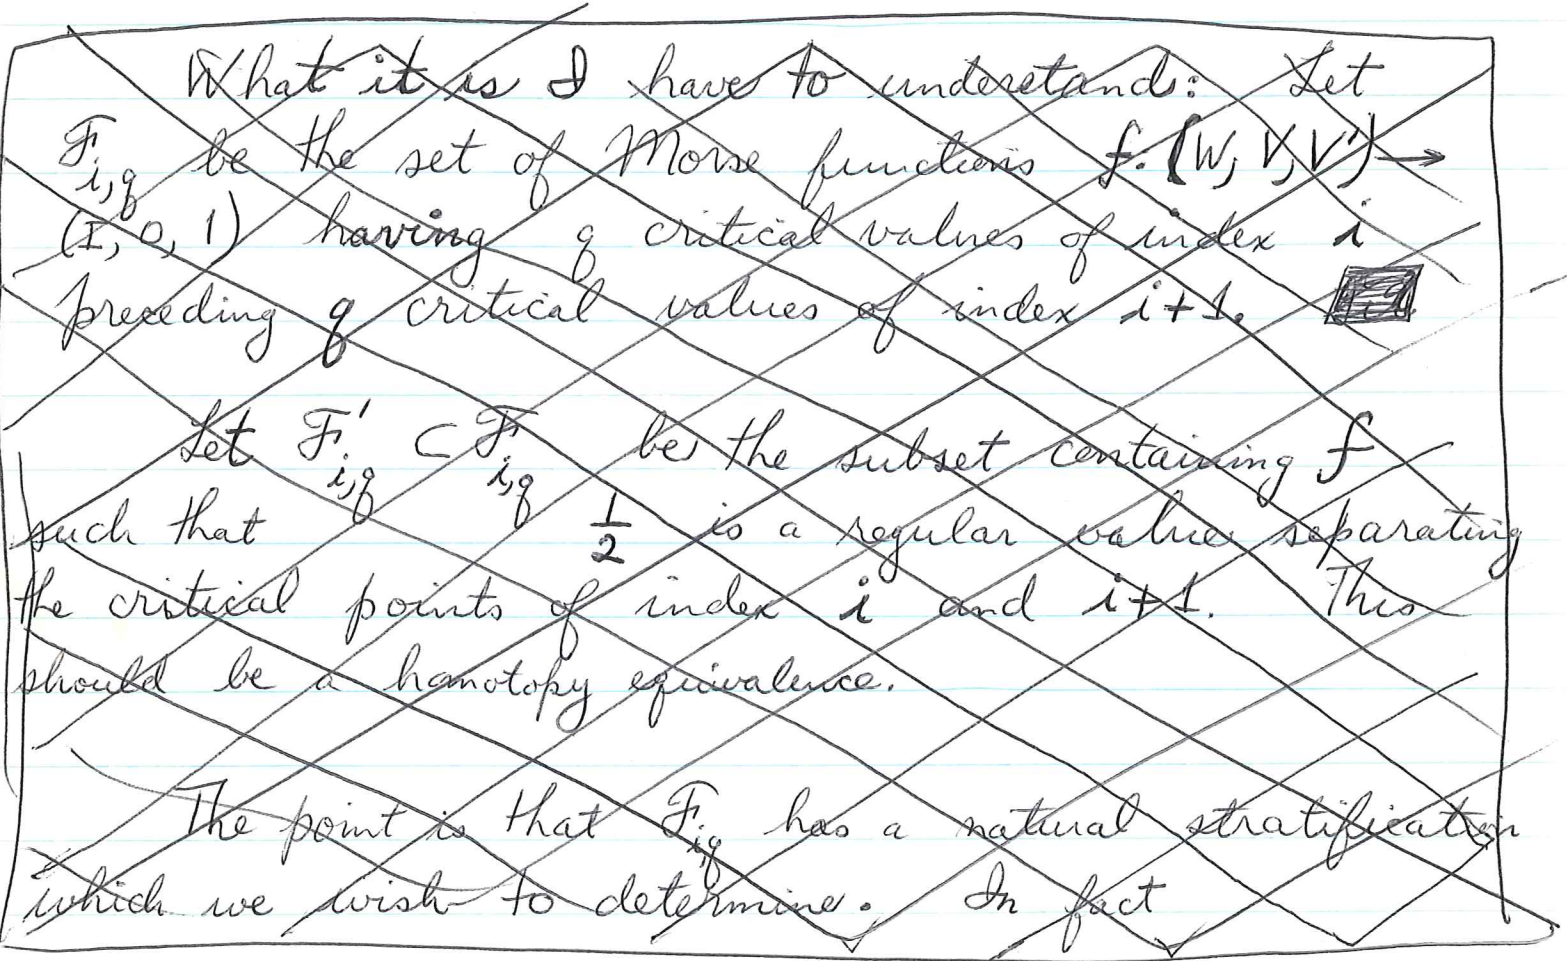 What it is I have to understand: Let
F_{i,q} be the set of Morse functions f: (W, V, V') →
(I, 0, 1) having q critical values of index i
preceding q critical values of index i+1.
Let F'_{i,q} ⊂ F_{i,q} be the subset containing f
such that 1/2 is a regular value separating
the critical points of index i and i+1. This
should be a homotopy equivalence.
The point is that F_{i,q} has a natural stratification
which we wish to determine. In fact